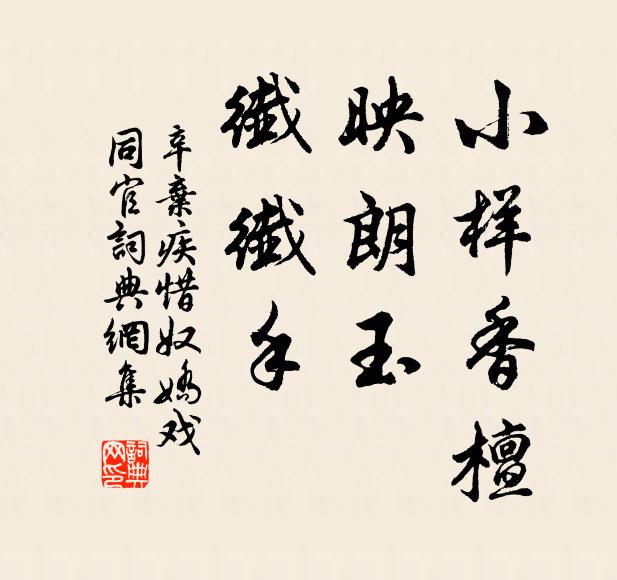 小样香檀
映朗玉
纖纖手
辛棄疾惜奴嬌戏
同官詞典網集
詞典
网印